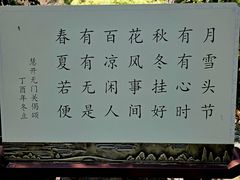 春有百花秋有月
夏有凉风冬有雪
若无闲事挂心头
便是人间好时节
慧开无门关偈颂
丁酉年冬立